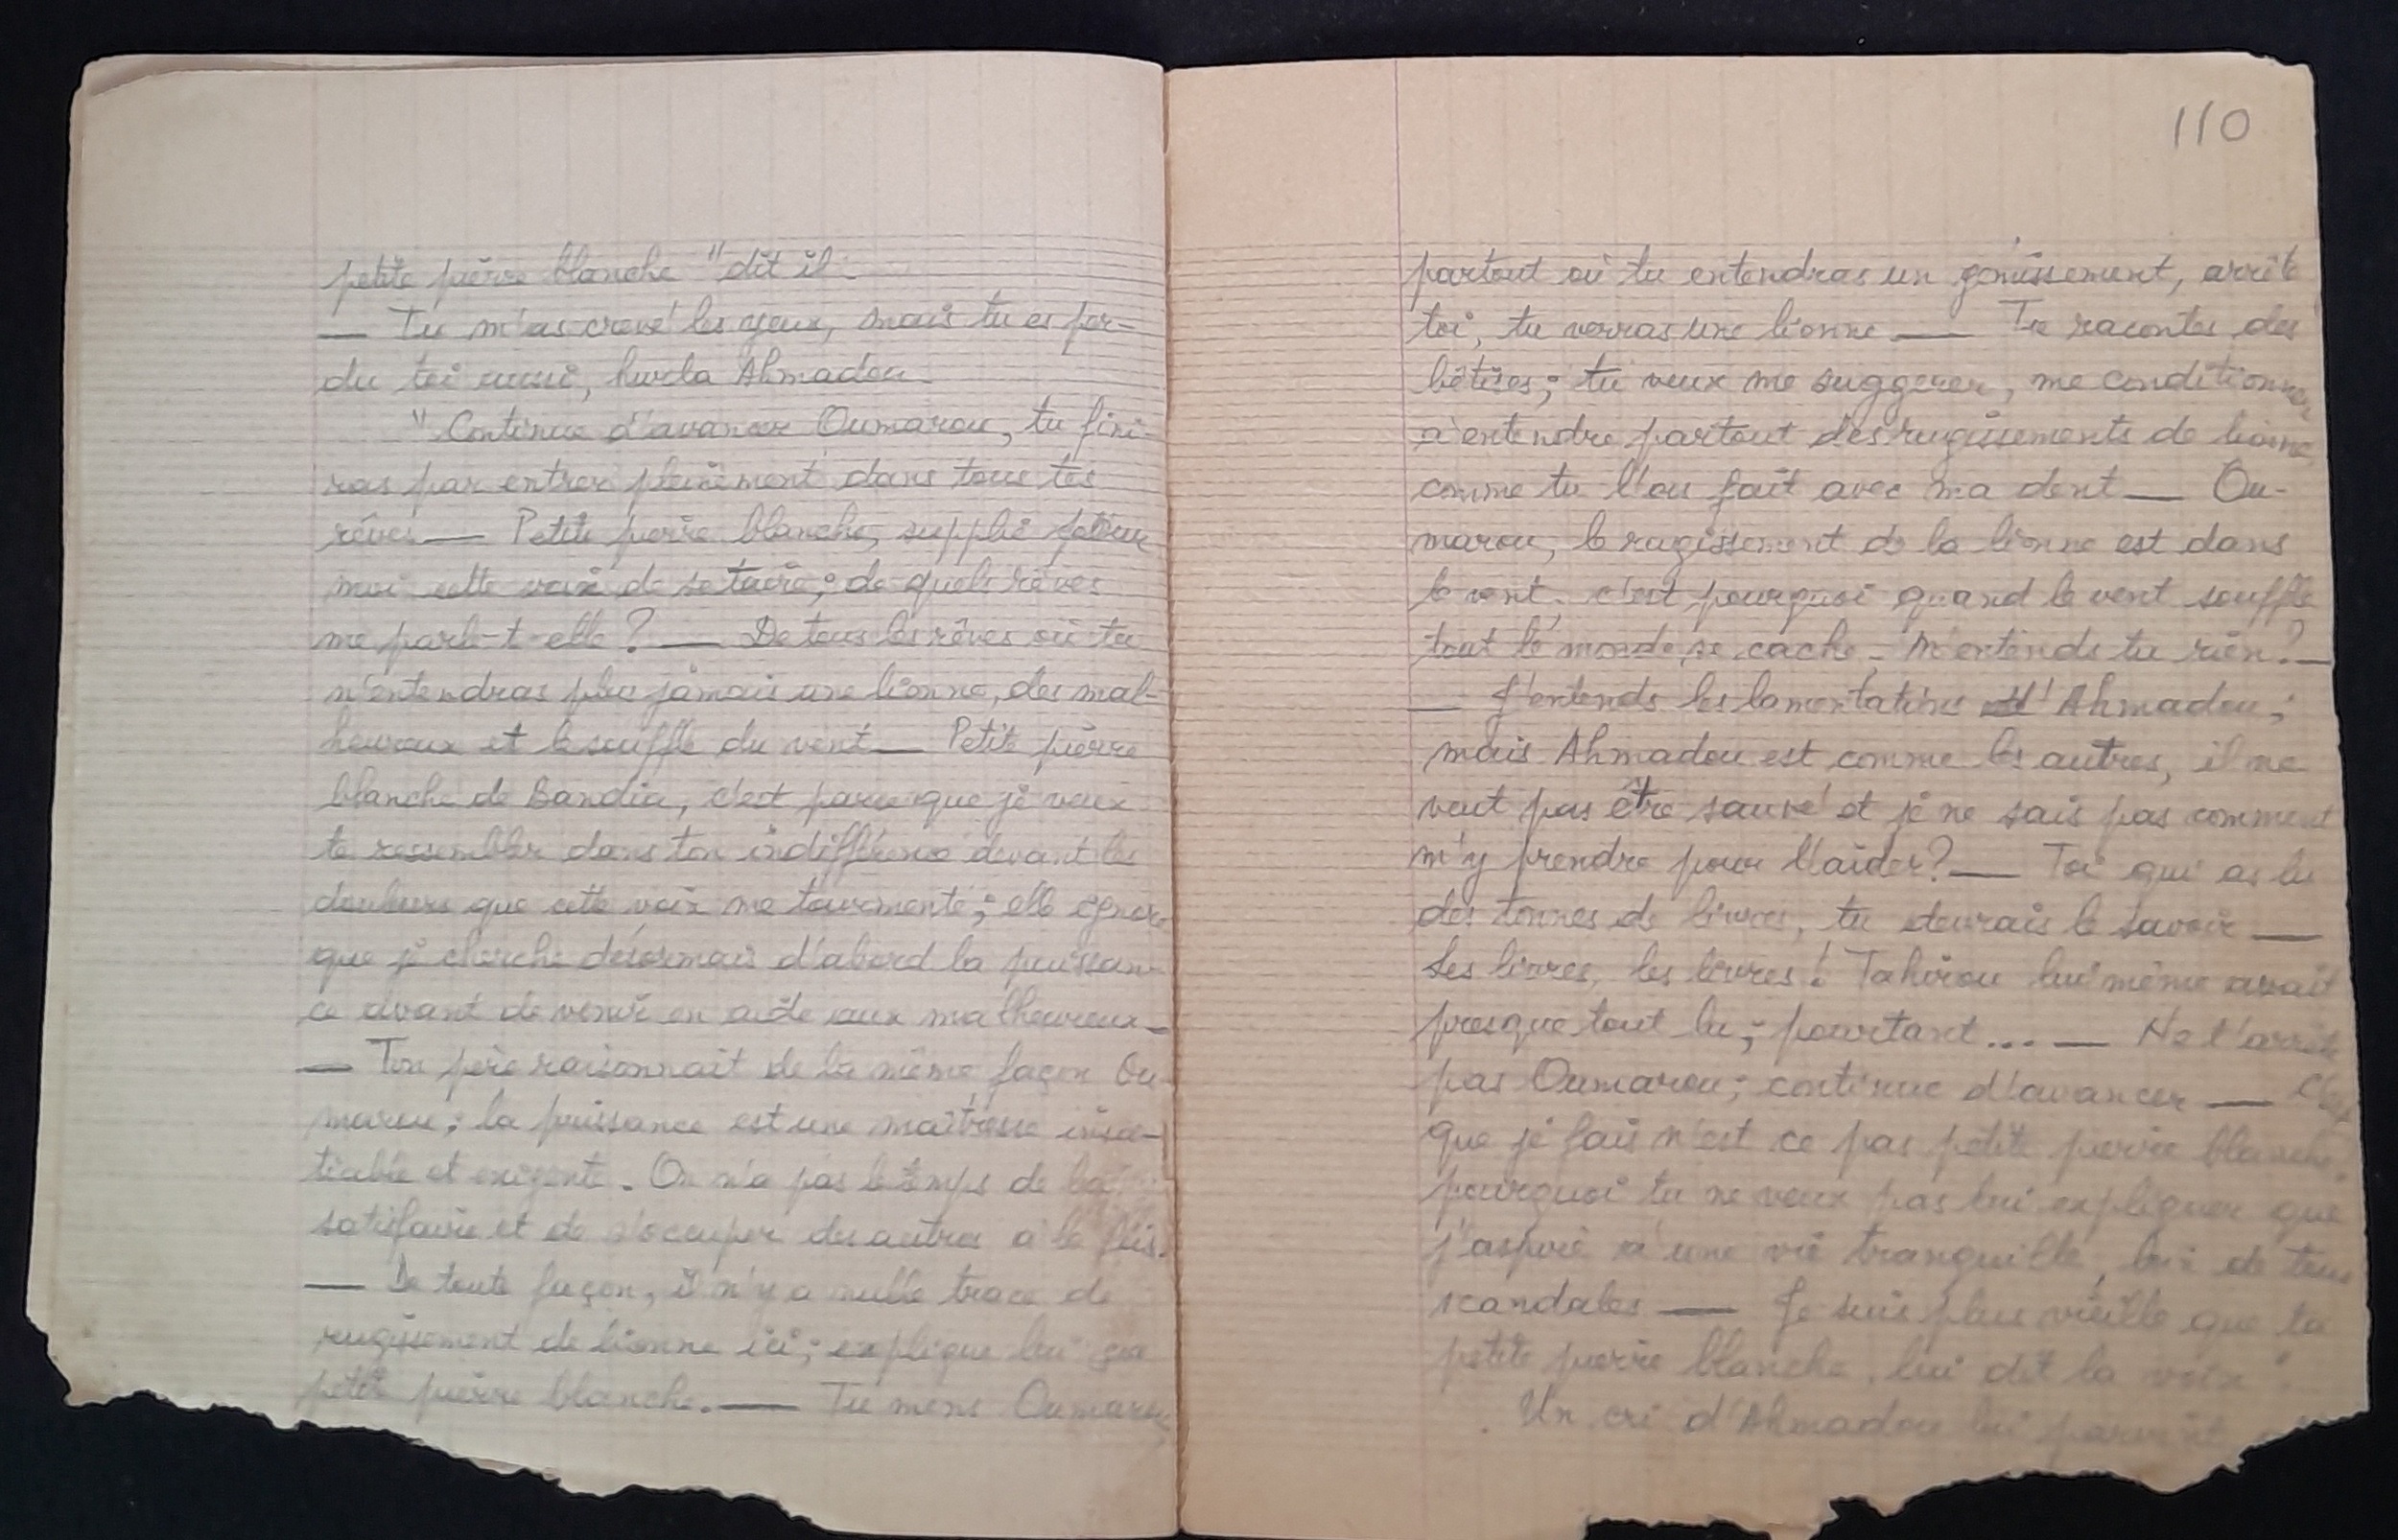 petite pierre blanche" dit il.
— Tu m'as crevé les yeux, mais tu es per-
du toi aussi, hurla Ahmadou.
"Continue d'avancer Oumarou, tu fini-
ras par entrer pleinement dans tous tes
rêves — Petite pierre blanche, supplie pour
moi cette voix de se taire ; de quels rêves
me parle-t-elle ? — De tous les rêves où tu
n'entendras plus jamais une lionne, des mal-
heureux et le souffle du vent — Petite pierre
blanche de Bandia, c'est parce que je veux
te ressembler dans ton indifférence devant les
douleurs que cette voix me tourmente ; elle ignore
que je cherche désormais d'abord la puissan-
ce avant de venir en aide aux malheureux —
— Ton père raisonnait de la même façon Ou-
marou ; la puissance est une maîtresse insa-
tiable et exigente. On n'a pas le temps de la
satisfaire et de s'occuper des autres à la fois.
— De toute façon, il n'y a nulle trace de
rugissement de lionne ici ; explique lui ça
petite pierre blanche. — Tu mens Oumarou,
110
partout où tu entendras un gémissement, arrête
toi, tu verras une lionne — Tu racontes des
bêtises ; tu veux me suggerer, me conditionner
à entendre partout des rugissements de lionne
comme tu l'as fait avec ma dent — Ou-
marou, le rugissement de la lionne est dans
le vent, c'est pourquoi quand le vent souffle
tout le monde se cache. N'entends tu rien ? —
— J'entends les lamentations d'Ahmadou ;
mais Ahmadou est comme les autres, il ne
veut pas être sauvé et je ne sais pas comment
m'y prendre pour l'aider ? — Toi qui as lu
des tonnes de livres, tu devrais le savoir —
Les livres, les livres ! Tahirou lui même avait
presque tout lu ; pourtant... — Ne t'arrête
pas Oumarou ; continue d'avancer —
que je fais n'est ce pas petite pierre blanche.
pourquoi tu ne veux pas lui expliquer que
j'aspire à une vie tranquille, loin de tous
scandales — Je suis plus vieille que ta
petite pierre blanche, lui dit la voix".
Un cri d'Ahmadou lui parvint